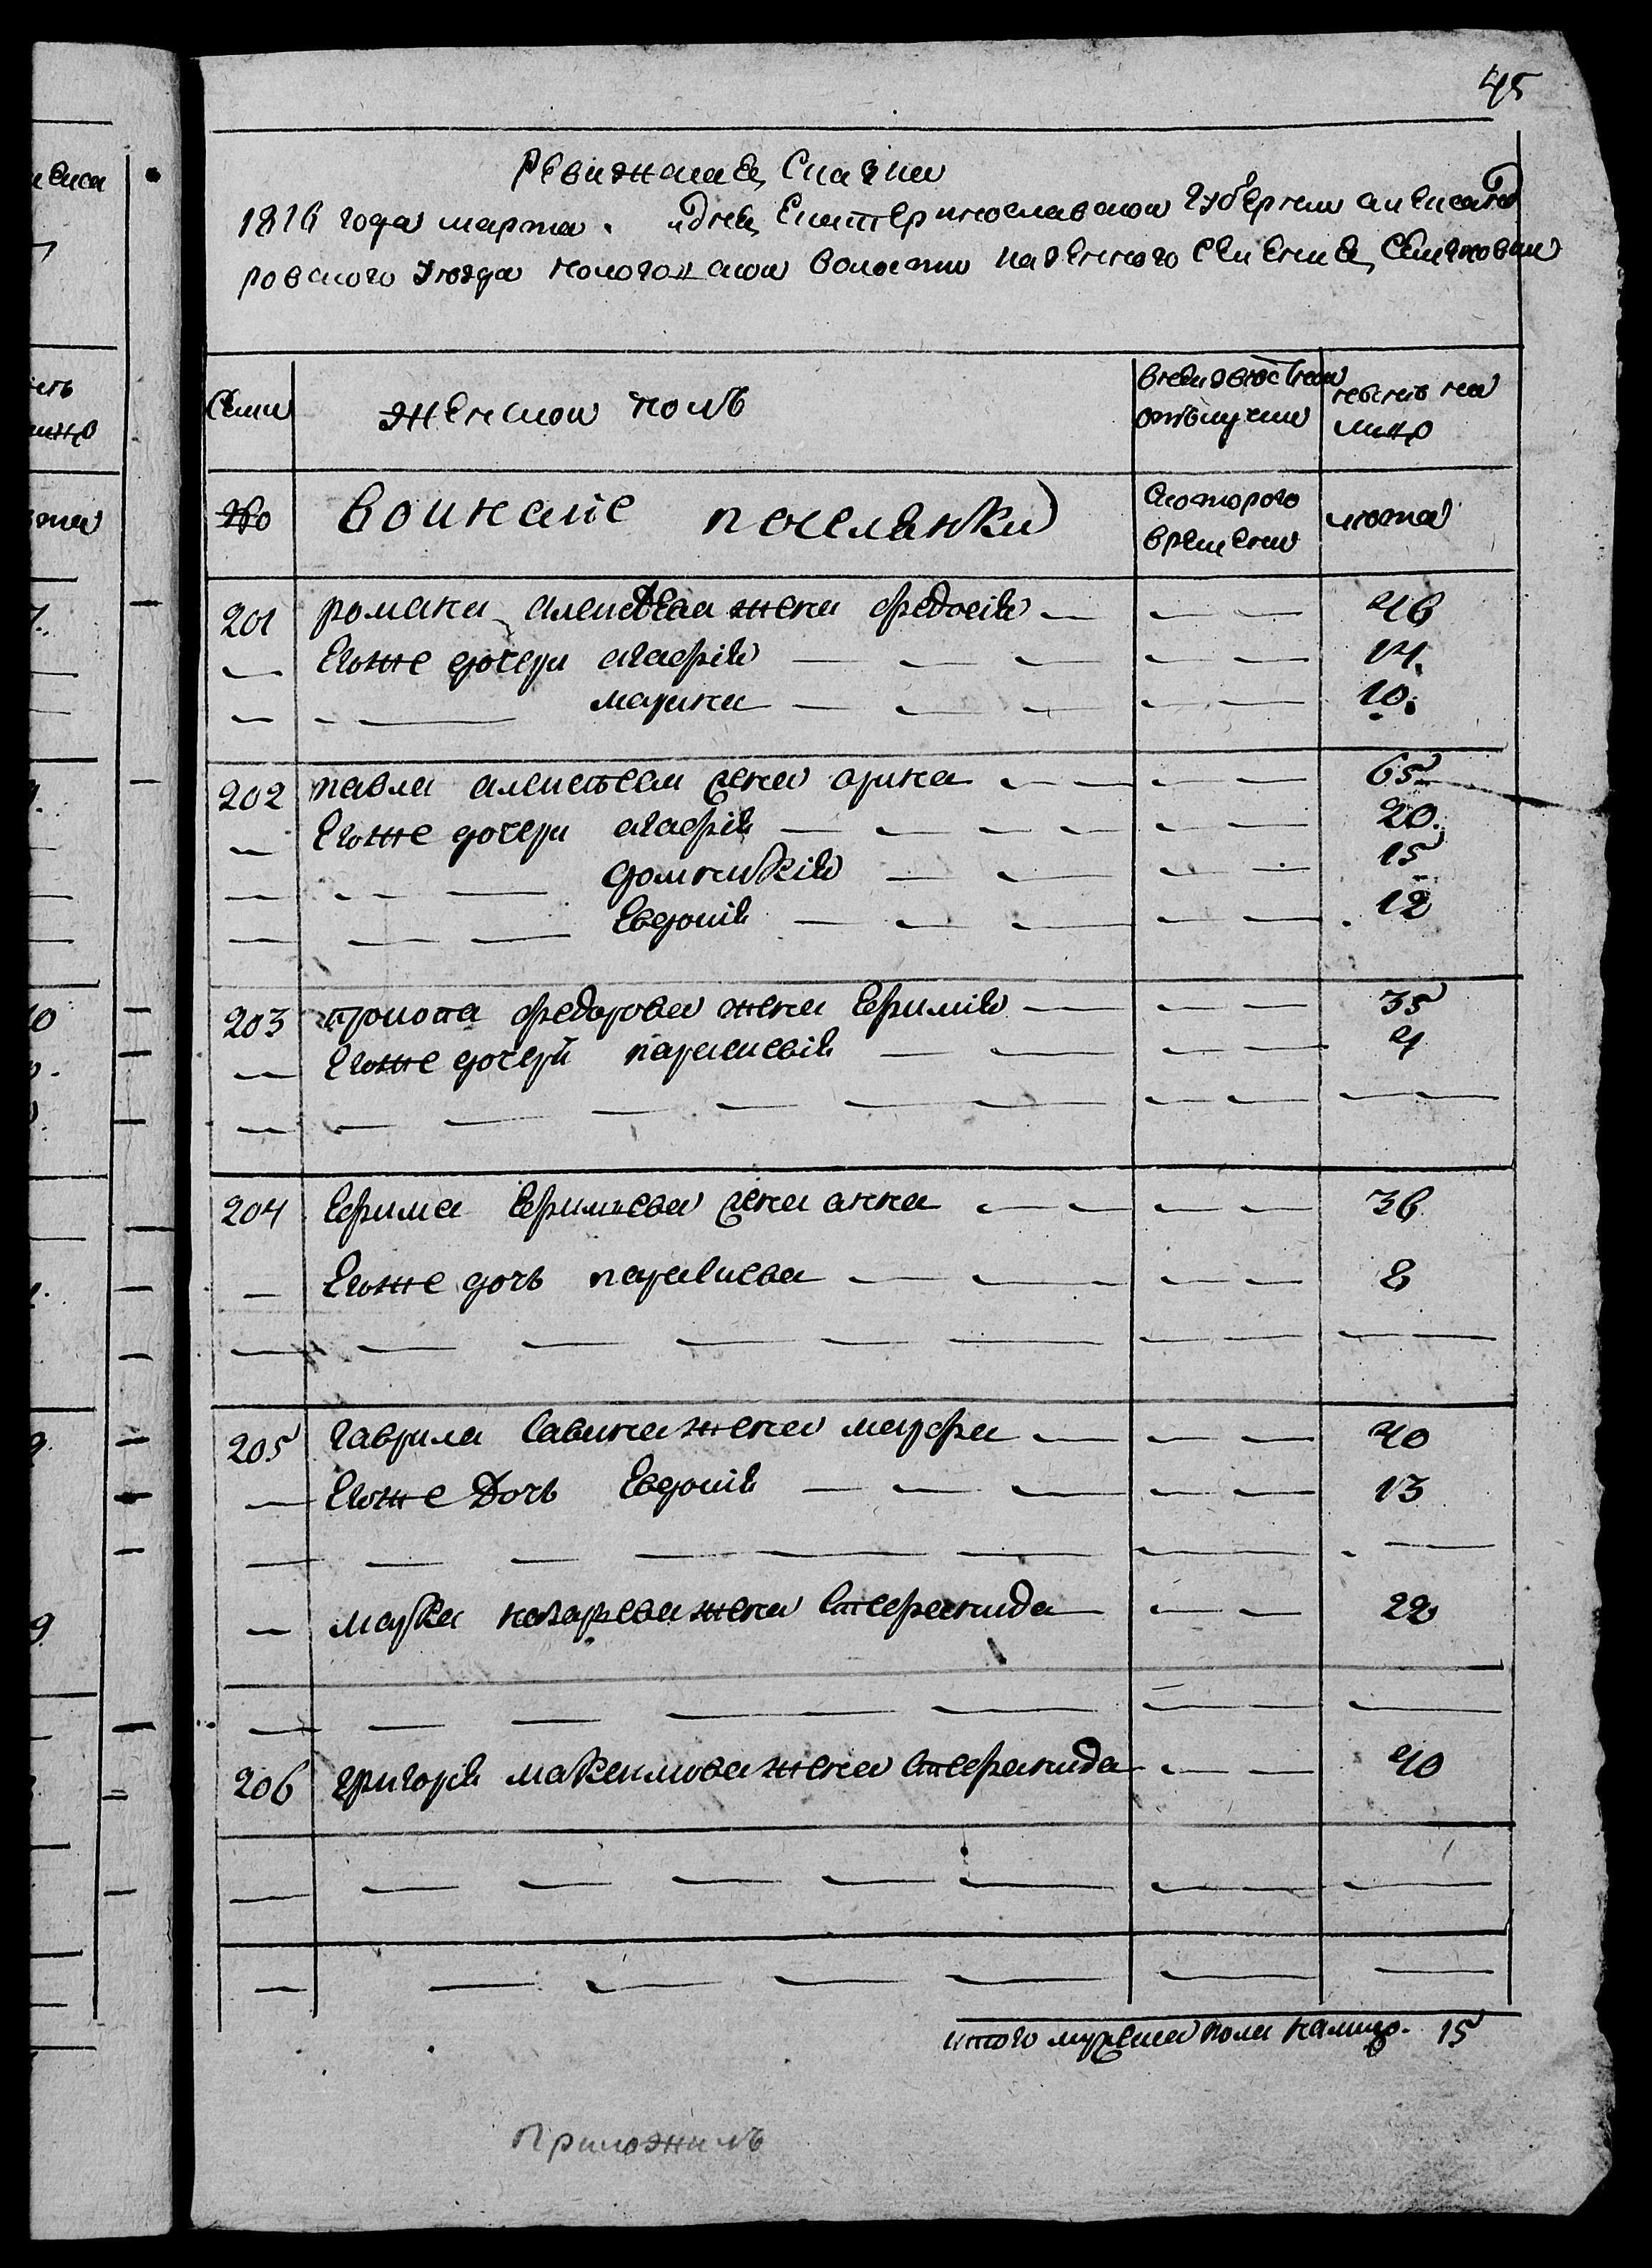 45
Ревижская Сказка
1816 года марта дня Екатеринославской губернии александ
ровского уезда волости казенного селения
Семьи
женской полъ
отълучки
ныне на
лицо
воинские поселянки
скоторого
времени
лета
201 романа алексеева жена федосия 46
Егоже дочери агафия 14.
марина 10.
202 павла алексеева жена орина 65
Егоже дочери агафия 20.
домникия 15
Евдокия 12
203 прокопа федорова жена Ефимия 35
Егоже дочери параскевия 4
204 Ефима Ефимьева жена анна 36
Егоже дочь параскева 8
205 гаврила савина жена марфа 40
Егоже Дочь Евдокия 13
марка назарева жена степанида 22
206 григория максимова жена степанида 40
итого женска пола налицо. 15
Приложилъ